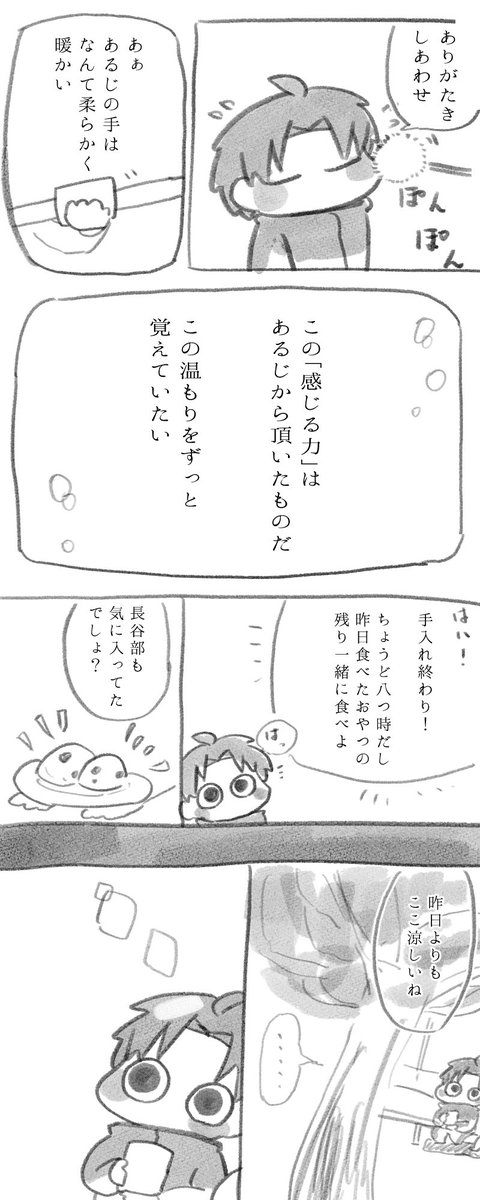 ありがたき
しあわせ
ぽん
ぽん
あぁ
あるじの手は
なんて柔らかく
暖かい
この「感じる力」は
あるじから頂いたものだ
この温もりをずっと
覚えていたい
はい!
手入れ終わり!
ちょうど八つ時だし
昨日食べたおやつの
残り一緒に食べよ
はっ
長谷部も
気に入ってた
でしょ?
昨日よりも
ここ涼しいね
……